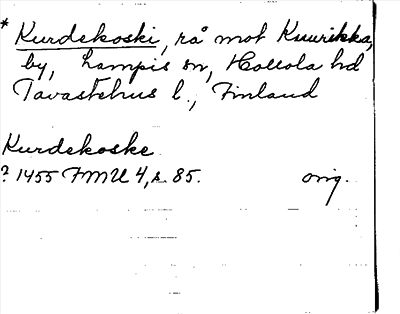 * Kurdekoski, rå mot Kuurikka,
by, Lampis sn, Hollola hd
Tavastehus l., Finland
Kurdekoske
? 1455 FMU 4, s. 85. orig.